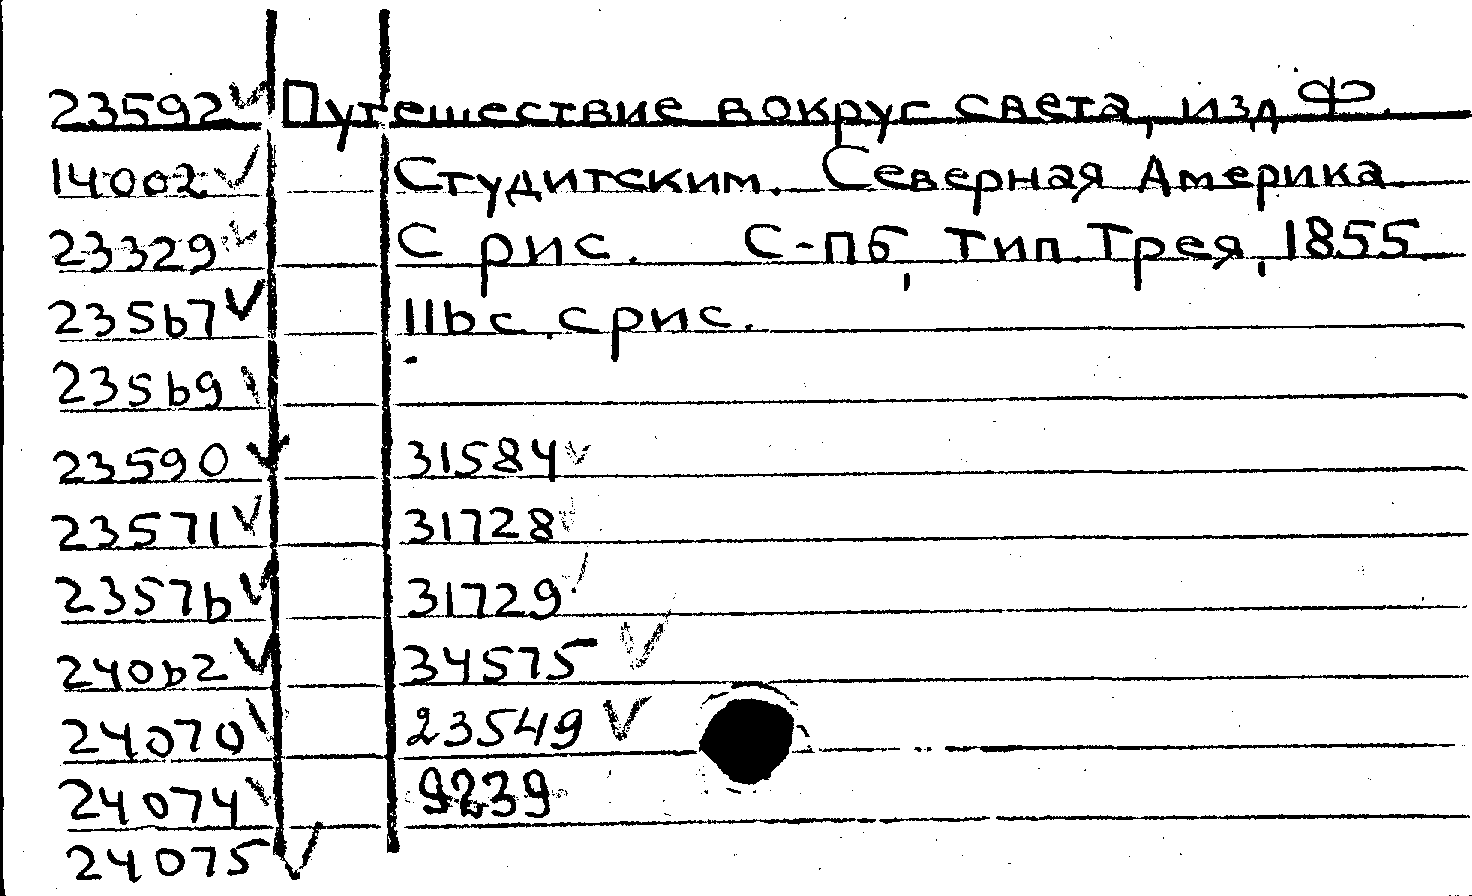 23592 Путешествие вокруг света, изд Ф.
14002 Студитским. Северная Америка.
23329 С рис. С-пб, Тип. Трея, 1855
235b7 11bс. с рис.
235b9
23590 31584
23571 31728
2357b 31729
240b2 34575
24070 23549
24074 9239
24075